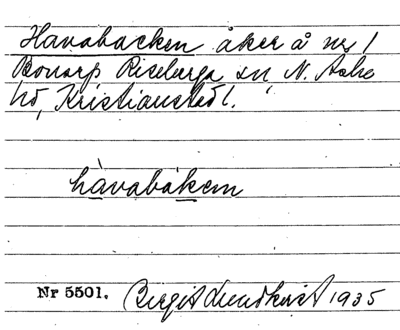 Havabacken åker å nr 1
Bonarp Riseberga sn N. Åsbo
hd, Kristianstad l.
hàvabàkem
Nr 5501. Birgit Lundkvist 1935